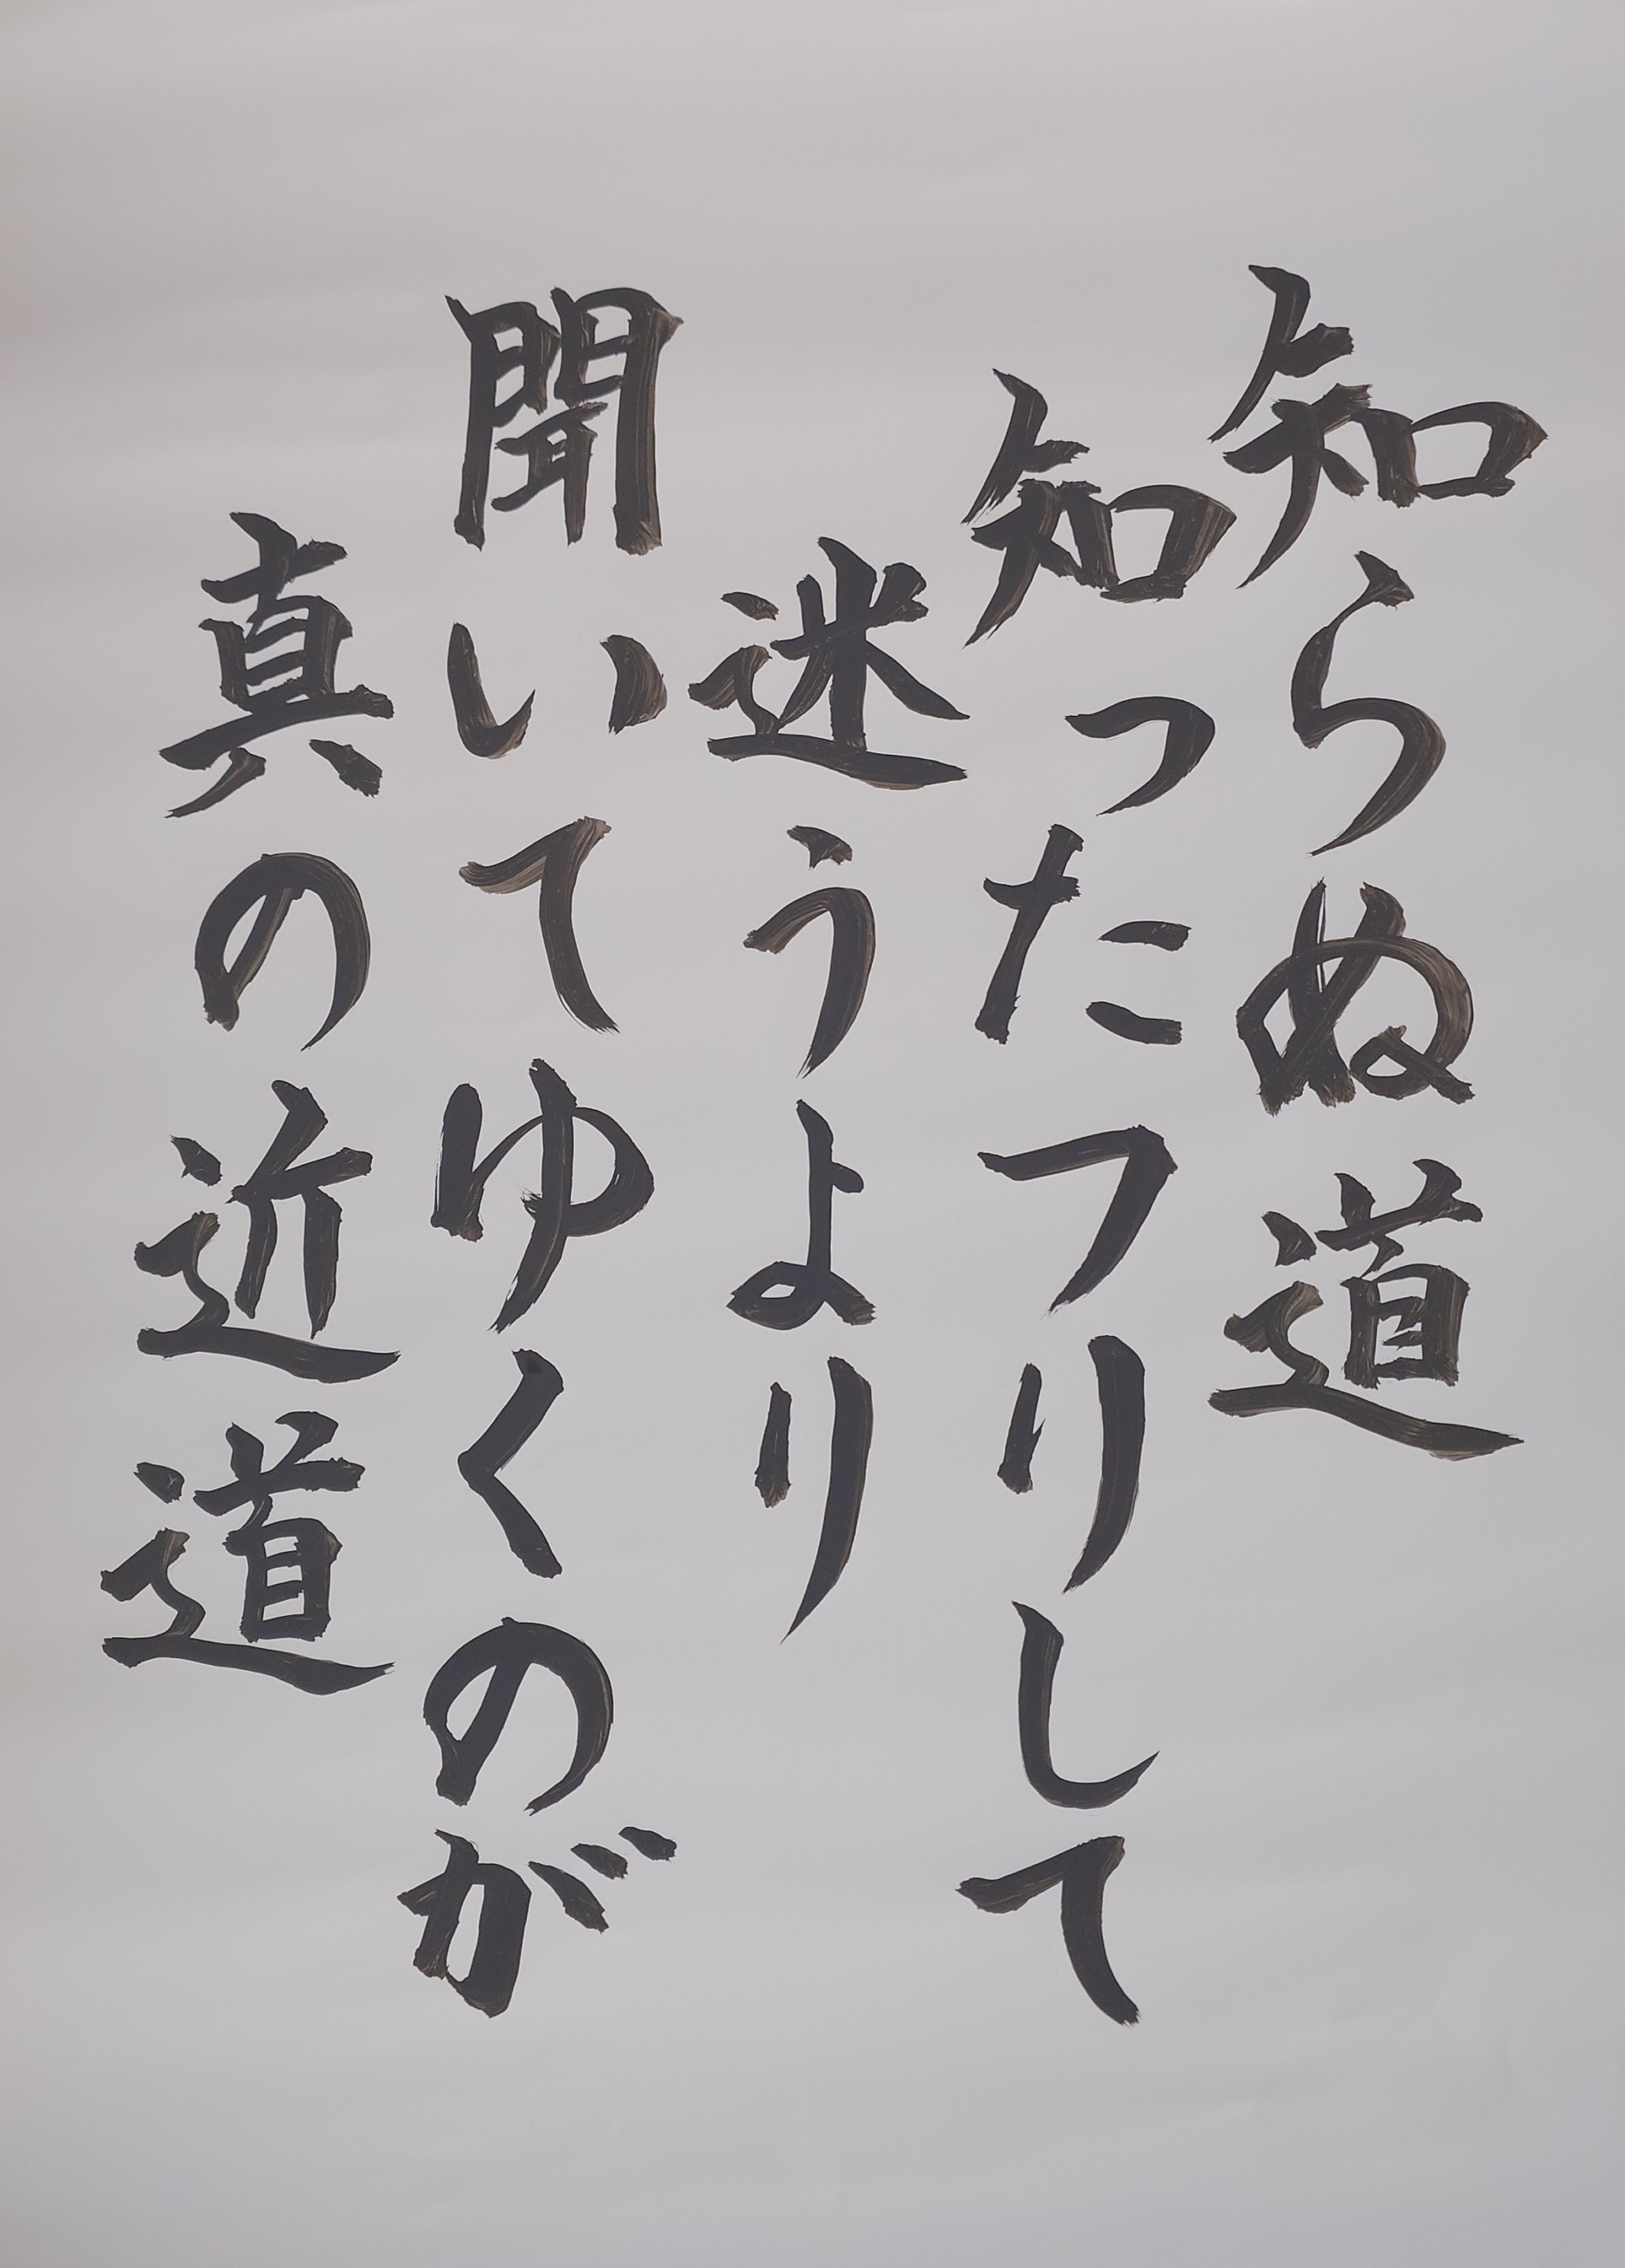 知らぬ道
知ったフリして
迷うより
聞いてゆくのが
真の近道